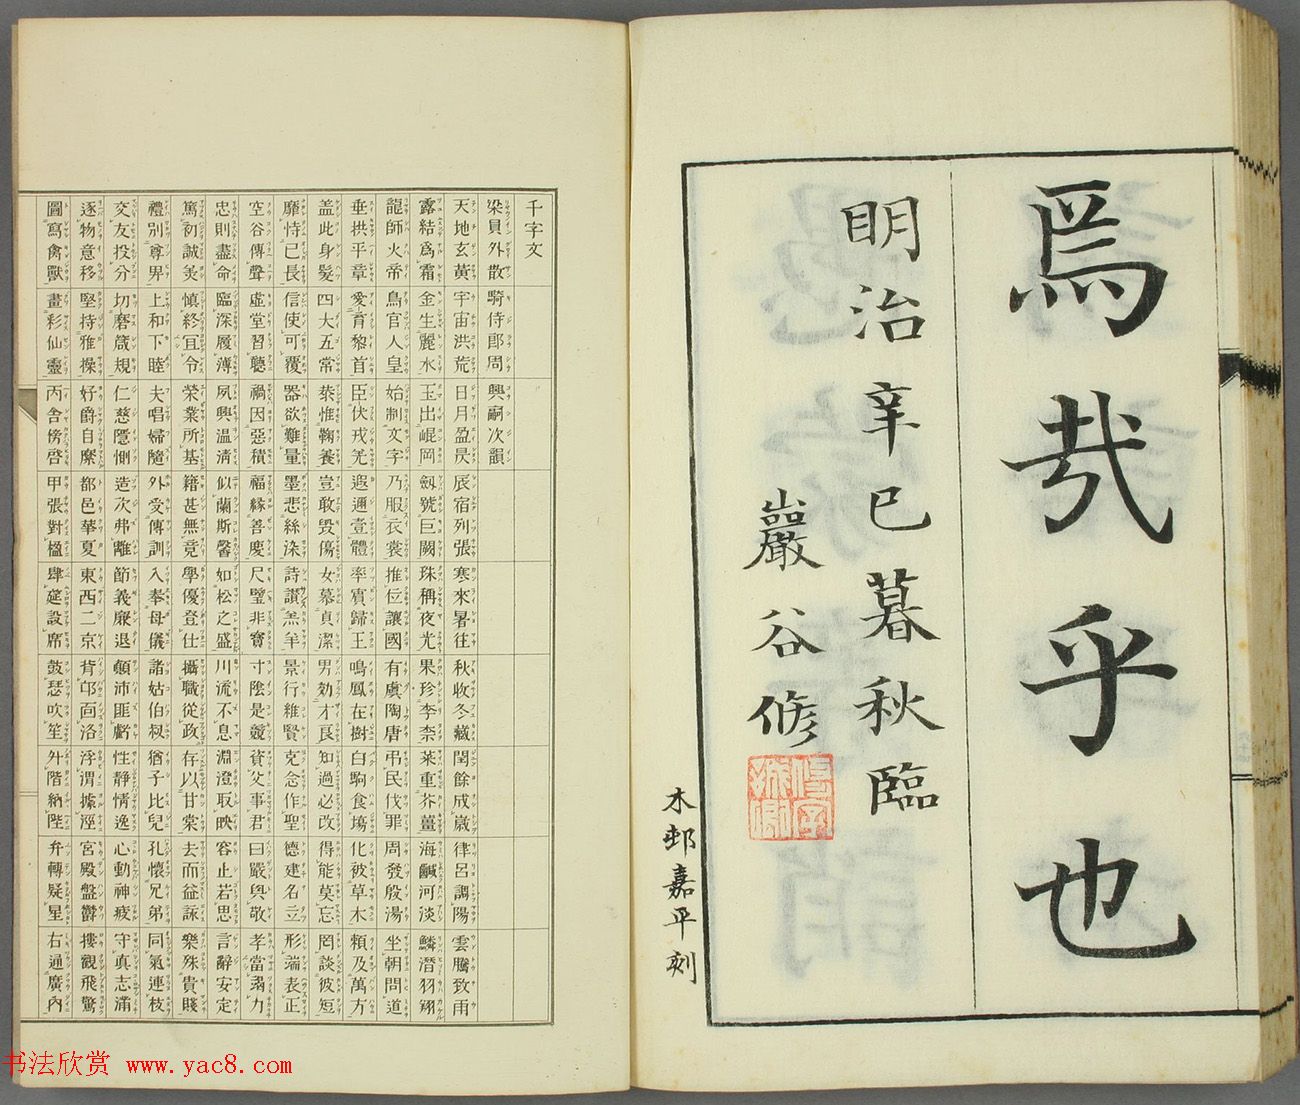 焉哉乎也
明治辛巳暮秋臨
巖谷修
木邨嘉平刻
千字文
梁員外散 騎侍郎周 興嗣次韻
天地玄黃 宇宙洪荒 日月盈昃 辰宿列張 寒來暑往 秋收冬藏 閏餘成歲 律呂調陽 雲騰致雨
露結爲霜 金生麗水 玉出崐岡 劒號巨闕 珠稱夜光 果珍李柰 菜重芥薑 海鹹河淡 鱗潛羽翔
龍師火帝 鳥官人皇 始制文字 乃服衣裳 推位讓國 有虞陶唐 弔民伐罪 周發殷湯 坐朝問道
垂拱平章 愛育黎首 臣伏戎羌 遐邇壹體 率賓歸王 鳴鳳在樹 白駒食場 化被草木 賴及萬方
盖此身髮 四大五常 恭惟鞠養 豈敢毀傷 女慕貞潔 男効才良 知過必改 得能莫忘 罔談彼短
靡恃己長 信使可覆 器欲難量 墨悲絲染 詩讃羔羊 景行維賢 克念作聖 德建名立 形端表正
空谷傳聲 虛堂習聽 禍因惡積 福緣善慶 尺璧非寶 寸陰是競 資父事君 曰嚴與敬 孝當竭力
忠則盡命 臨深履薄 夙興温凊 似蘭斯馨 如松之盛 川流不息 淵澄取映 容止若思 言辭安定
篤初誠美 慎終宜令 榮業所基 籍甚無竟 學優登仕 攝職從政 存以甘棠 去而益詠 樂殊貴賤
禮別尊卑 上和下睦 夫唱婦隨 外受傅訓 入奉母儀 諸姑伯叔 猶子比兒 孔懷兄弟 同氣連枝
交友投分 切磨箴規 仁慈隱惻 造次弗離 節義廉退 顛沛匪虧 性靜情逸 心動神疲 守真志滿
逐物意移 堅持雅操 好爵自縻 都邑華夏 東西二京 背邙面洛 浮渭據涇 宮殿盤鬱 樓觀飛驚
圖寫禽獸 畫彩仙靈 丙舍傍啓 甲張對楹 肆筵設席 鼓瑟吹笙 升階納陛 弁轉疑星 右通廣內
书法欣赏 www.yac8.com